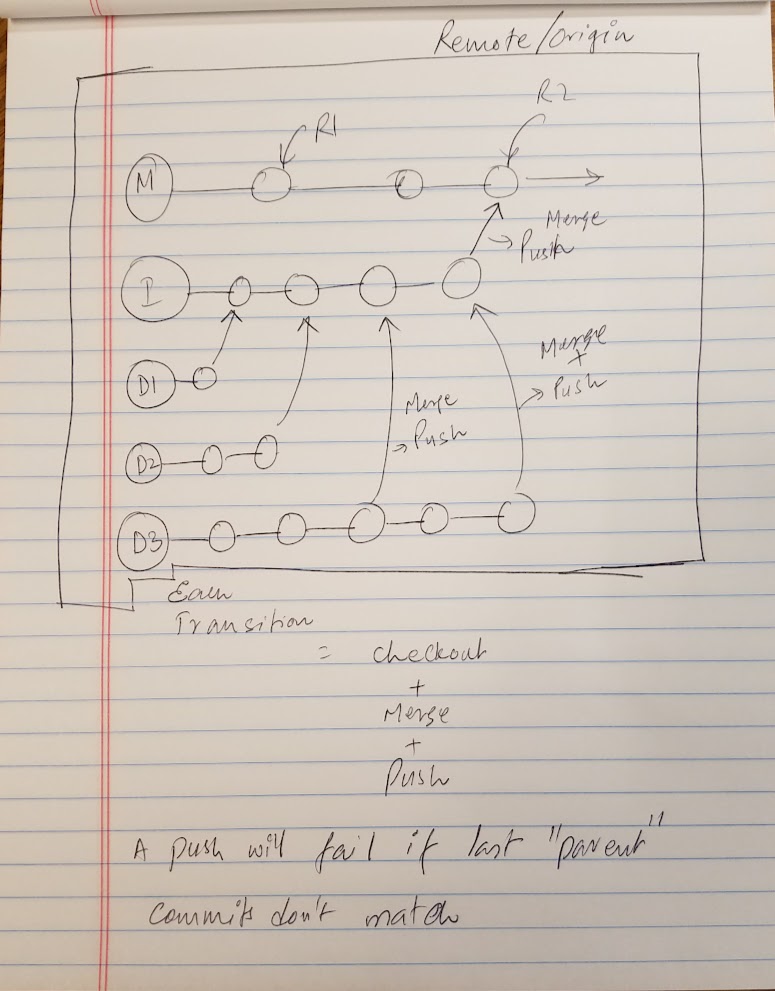 Remote/Origin
R1
R2
M
Merge
Push
I
Merge
+
Push
D1
Merge
Push
D2
D3
Each
Transition
= checkout
+
Merge
+
Push
A push will fail if last "parent"
commits don't match